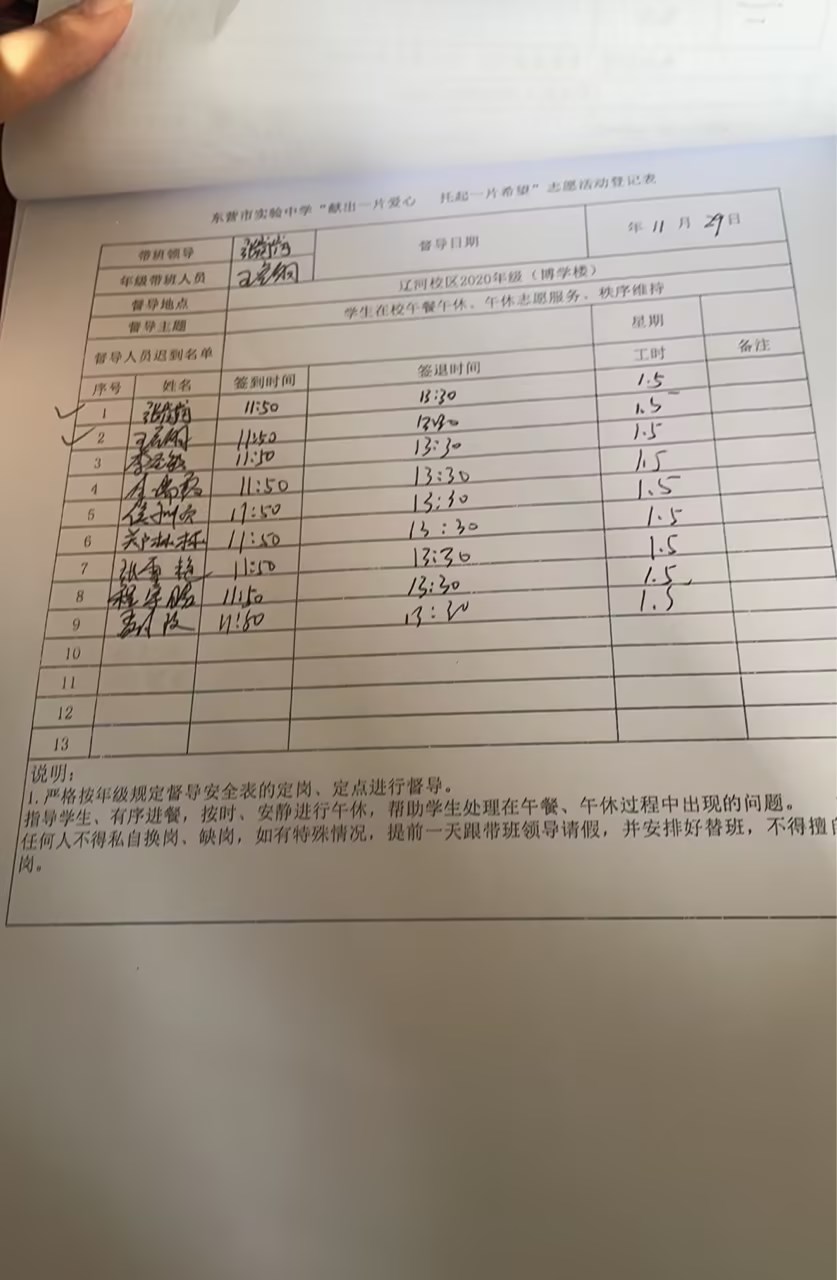 东营市实验中学“献出一片爱心 托起一片希望”志愿活动登记表
带班领导 督导日期 年 11 月 29 日
年级带班人员
督导地点 辽河校区2020年级（博学楼）
督导主题 学生在校午餐午休、午休志愿服务、秩序维持
督导人员迟到名单 星期
序号 姓名 签到时间 签退时间 工时 备注
1 11:50 13:30 1.5
2 11:50 13:30 1.5
3 11:50 13:30 1.5
4 11:50 13:30 1.5
5 11:50 13:30 1.5
6 郑林林 11:50 13:30 1.5
7 张雪艳 11:50 13:30 1.5
8 11:50 13:30 1.5
9 11:50 13:30 1.5
10
11
12
13
说明：
1.严格按年级规定督导安全表的定岗、定点进行督导。
指导学生、有序进餐，按时、安静进行午休，帮助学生处理在午餐、午休过程中出现的问题。
任何人不得私自换岗、缺岗，如有特殊情况，提前一天跟带班领导请假，并安排好替班，不得擅自
岗。